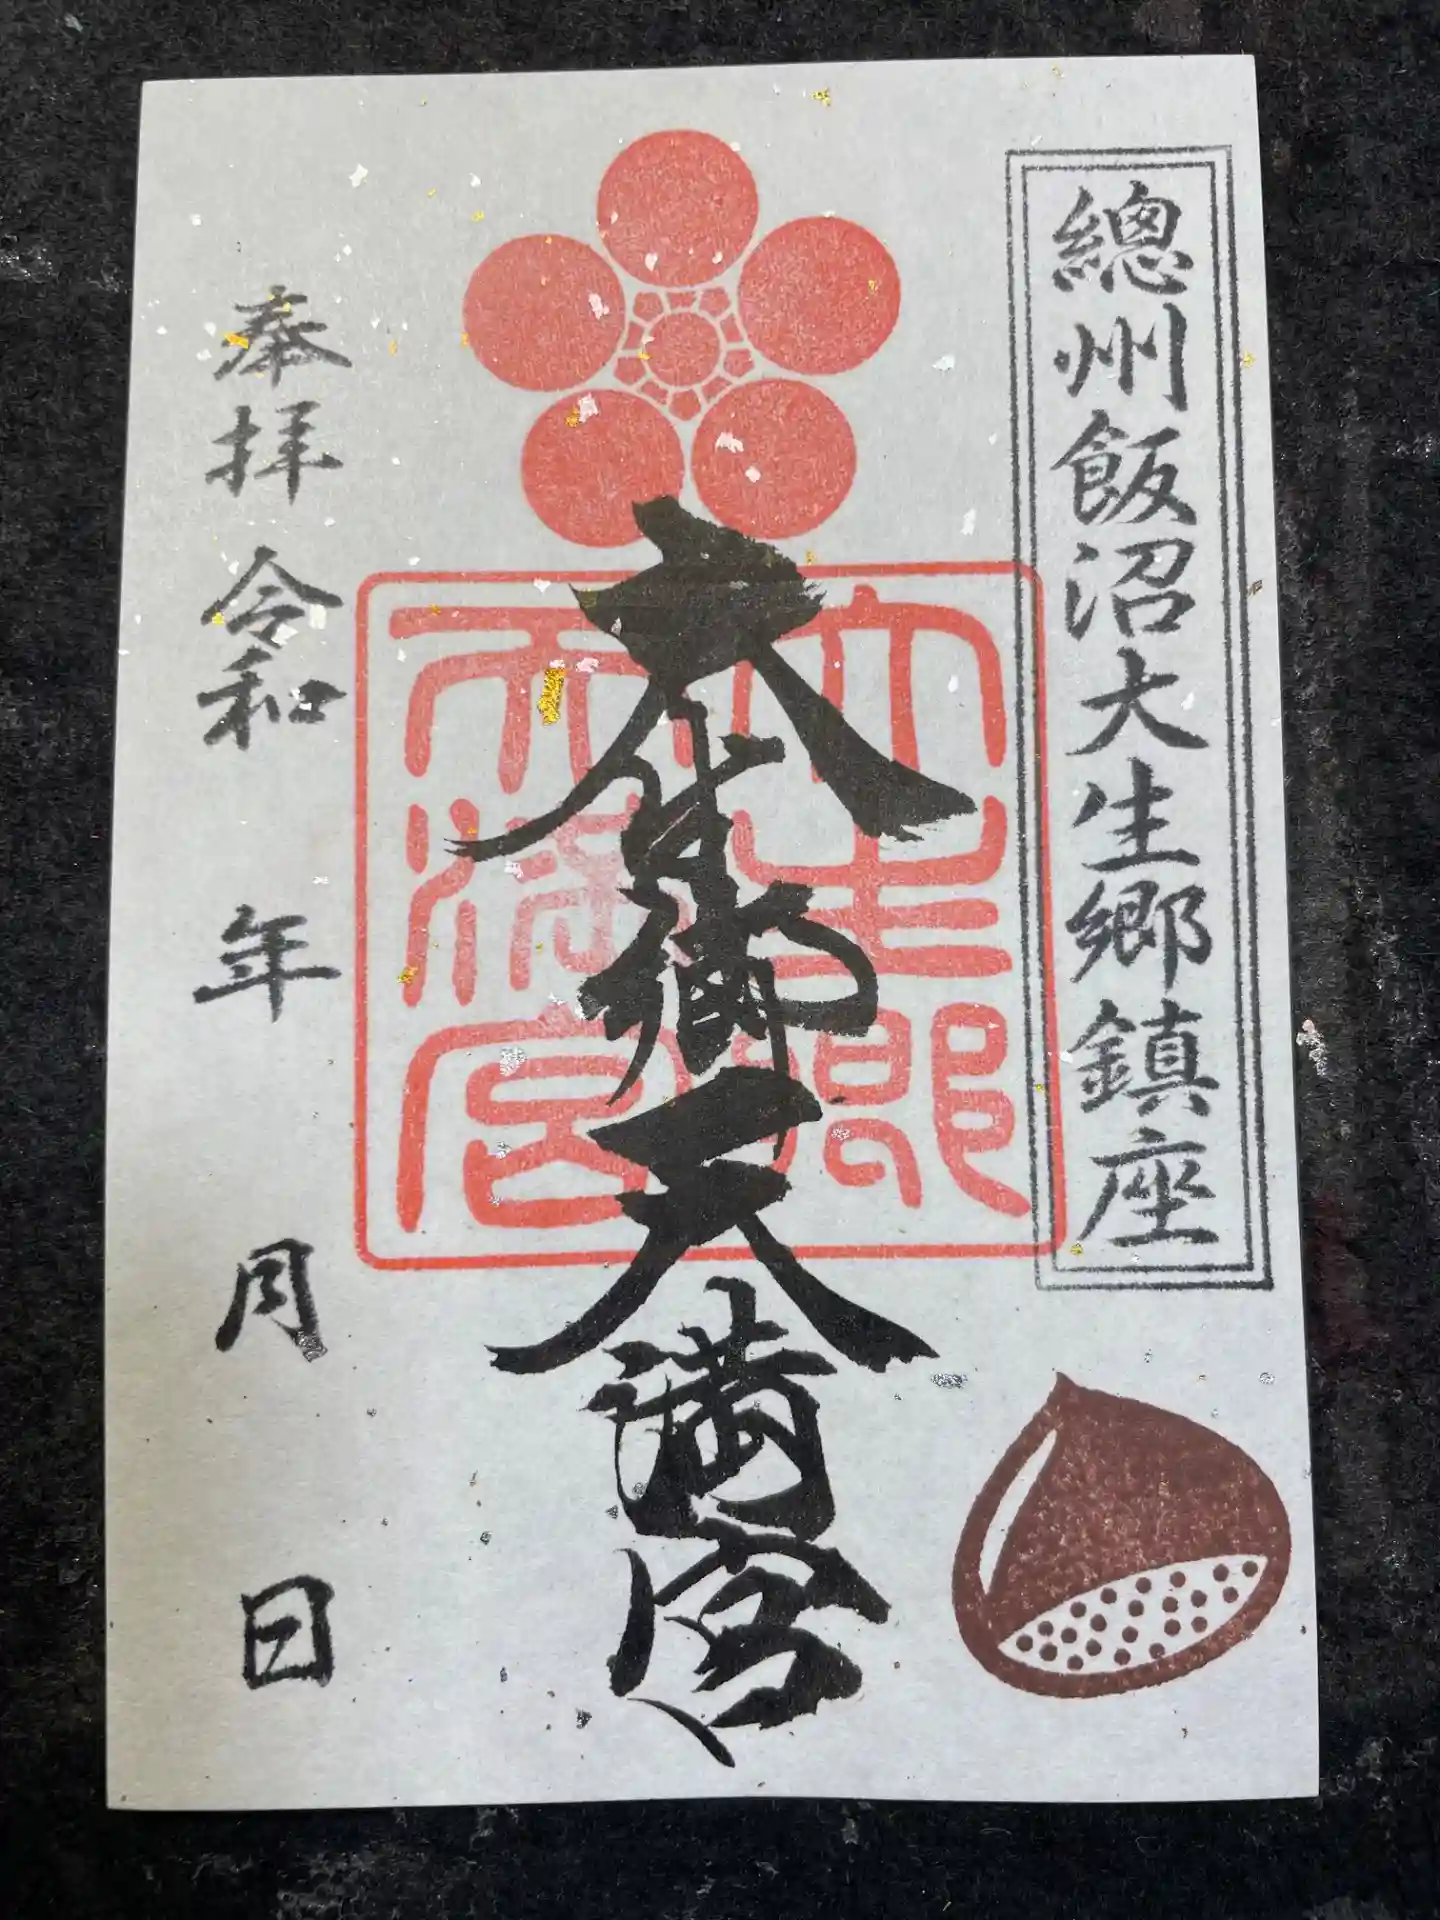 總州飯沼大生郷鎮座
大生郷天満宮
大生郷
天満宮
奉拝 令和 年 月 日